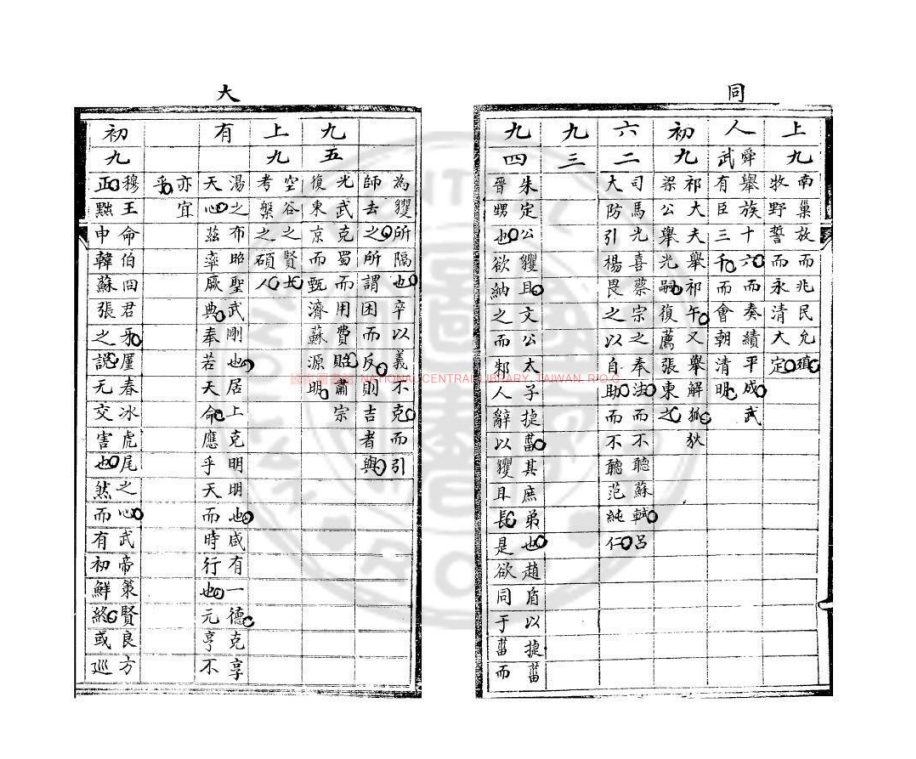 同
上九
南巢放而兆民允殖
牧野誓而永清大定
人
舜舉族十六而奏績平成武
武有臣三千而會朝清明
初九
祁大夫舉祁午又舉解狐狄
梁公舉光嗣復薦張東之
六二
司馬光喜蔡宗之奉法而不聽蘇軾呂
大防引楊畏之以自助而不聽范純仁
九三
九四
朱定公貜且文公太子捷菑其庶弟也趙盾以捷菑
晉甥也欲納之而邾人辭以貜且長是欲同于菑而
為貜所隔也卒以義不克而引
師去之所謂困而反則吉者與
九五
光武克蜀而用費貽肅宗
復東京而甄濟蘇源明
上九
空谷之賢士
考槃之碩人
大
有
湯之布昭聖武剛也居上克明明也咸有一德克享
天心茲率厥典奉若天命應乎天而時行也元亨不
亦宜
乎
初九
穆王命伯冏君牙屢春冰虎尾之心武帝策賢良方
正黜申韓蘇張之說无交害也然而有初鮮終或巡
國家圖書館 NATIONAL CENTRAL LIBRARY, TAIWAN, R.O.C